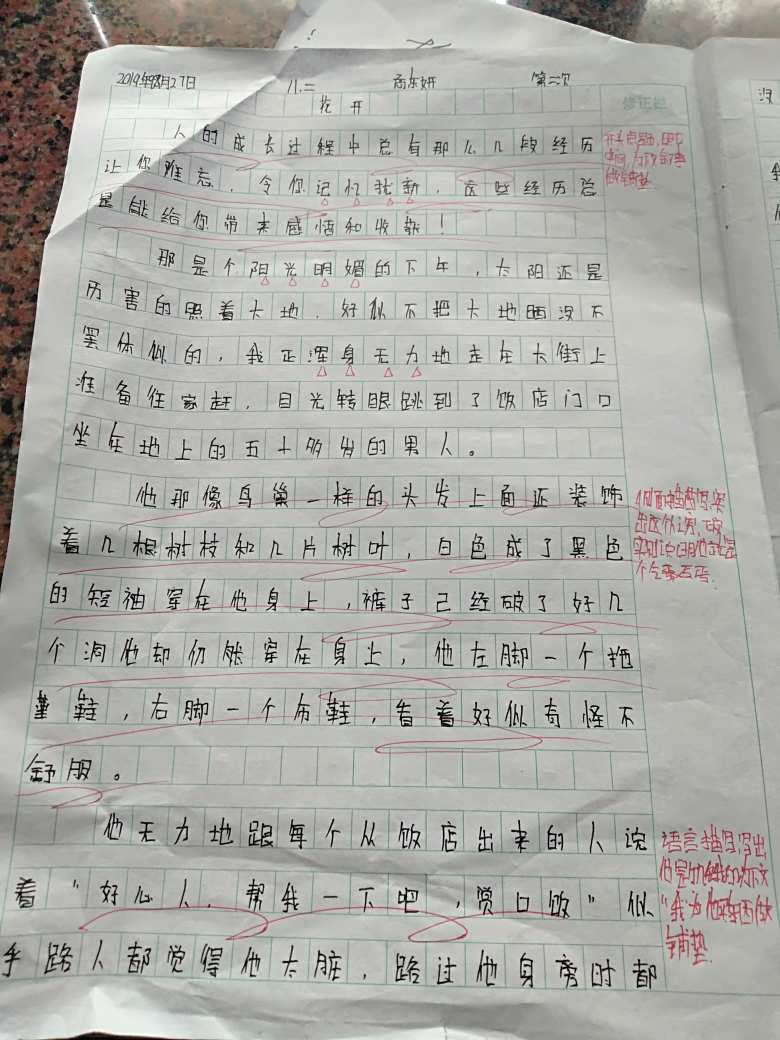 2019年8月27日 八.二 第二次
修正栏
花开
人的成长过程中总有那么几段经历
让你难忘，令你记忆犹新，这些经历总
是能给你带来感悟和收获！
那是个阳光明媚的下午，太阳还是
厉害的照着大地，好似不把大地晒没不
罢休似的，我正浑身无力地走在大街上
准备往家赶，目光转眼跳到了饭店门口
坐在地上的五十多岁的男人。
他那像鸟巢一样的头发上面还装饰
着几根树枝和几片树叶，白色成了黑色
的短袖穿在他身上，裤子己经破了好几
个洞他却仍然穿在身上，他左脚一个拖
鞋，右脚一个布鞋，看着好似奇怪不
舒服。
他无力地跟每个从饭店出来的人说
着"好心人，帮我一下吧，赏口饭"似
乎路人都觉得他太脏，路过他身旁时都
开头点题
做铺垫
语言描写写出
铺垫
没